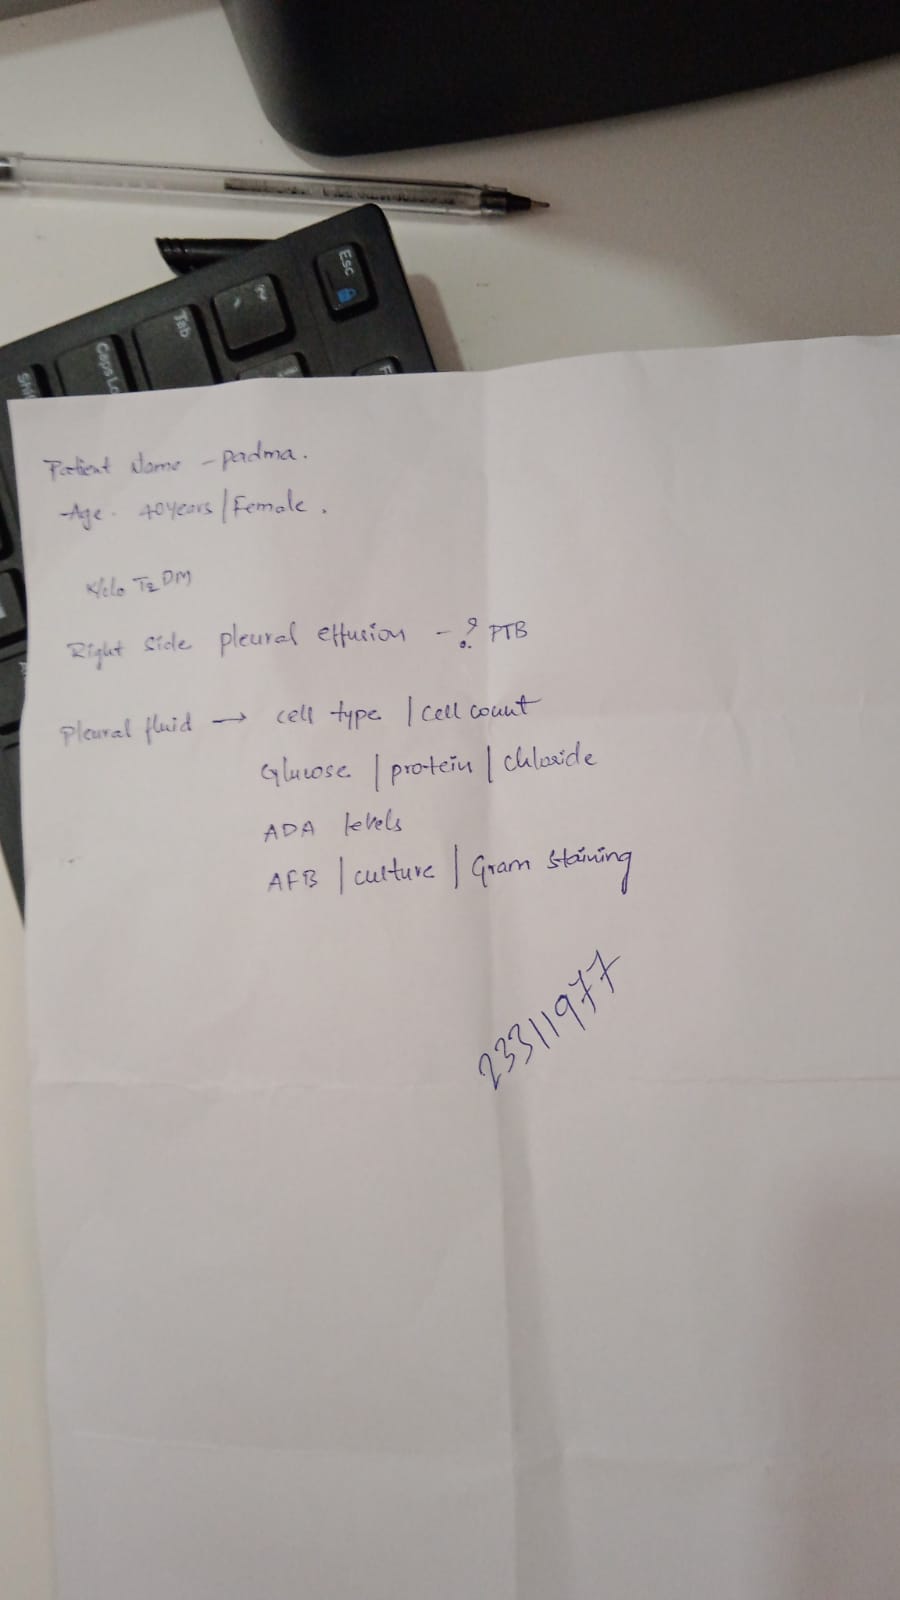 Esc
Tab
Caps Lo
Shi
F
A
Patient Name - padma.
Age. 40 years / Female.
K/c/o T2 DM
Right Side pleural effusion - ? PTB
Pleural fluid → cell type / cell count
Glucose / protein / chloride
ADA levels
AFB / culture / Gram staining
23311977